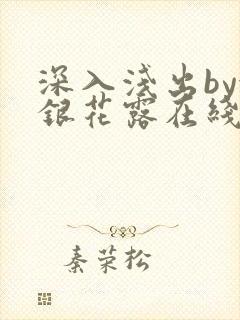 深入浅出by
銀花露在綫
秦荣松